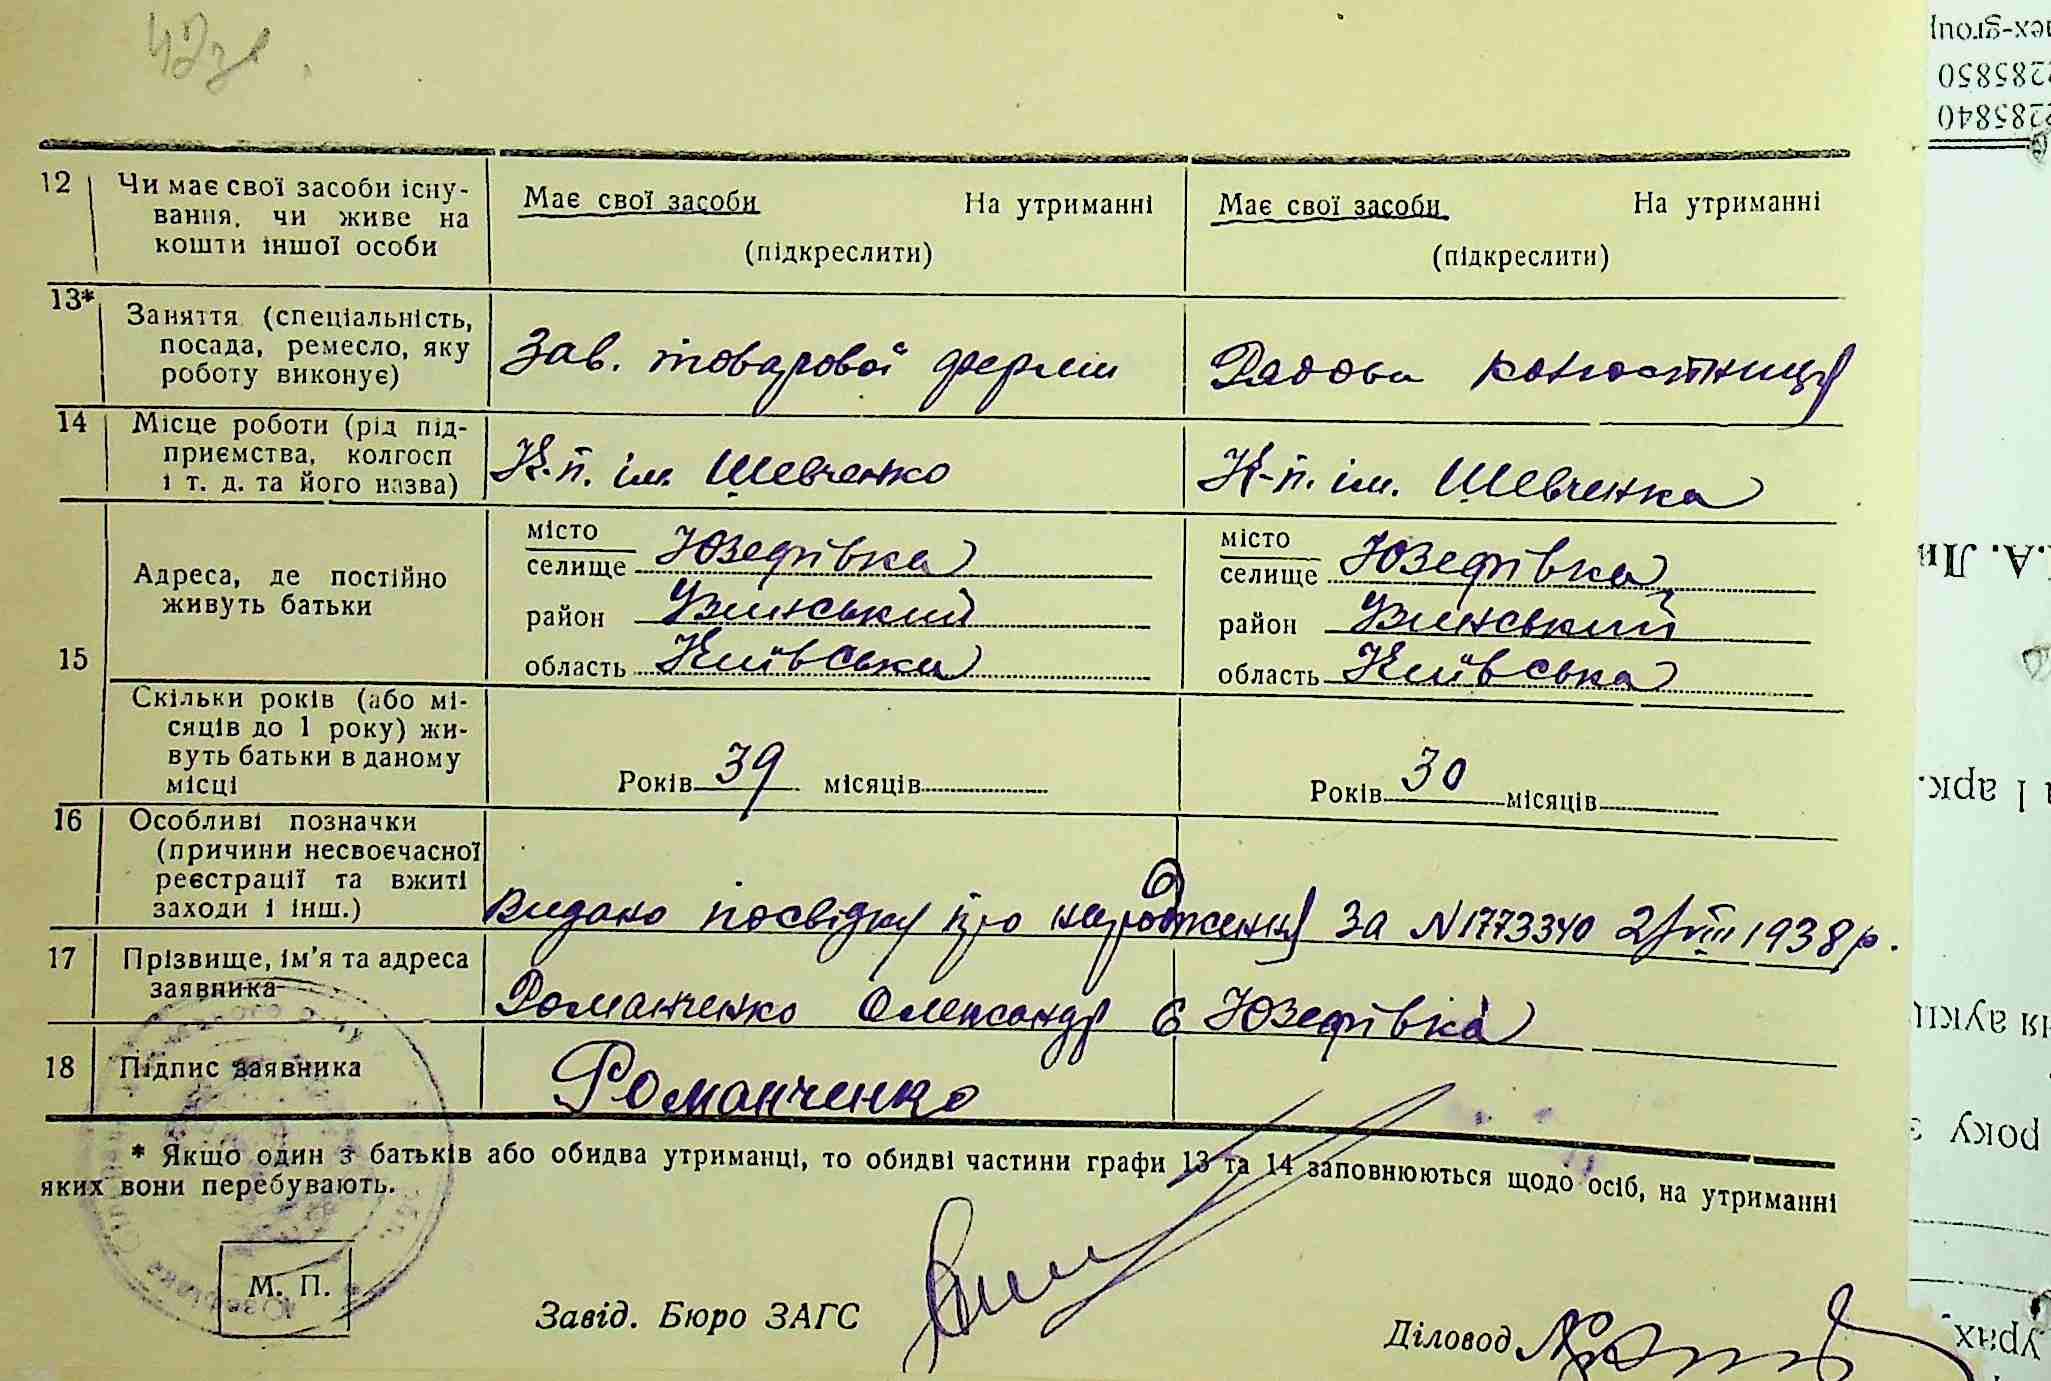 12 Чи має свої засоби існу-
вання, чи живе на
кошти іншої особи
Має свої засоби На утриманні
(підкреслити)
Має свої засоби На утриманні
(підкреслити)
13*
Заняття (спеціальність,
посада, ремесло, яку
роботу виконує)
Зав. товарової ферми
Рядова колгоспниця
14 Місце роботи (рід під-
приємства, колгосп
і т. д. та його назва)
К-п. ім. Шевченко
К-п. ім. Шевченка
15
Адреса, де постійно
живуть батьки
місто
селище Юзефівка
район Узинський
область Київська
місто
селище Юзефівка
район Узинський
область Київська
Скільки років (або мі-
сяців до 1 року) жи-
вуть батьки в даному
місці
Років 39 місяців
Років 30 місяців
16 Особливі позначки
(причини несвоєчасної
реєстрації та вжиті
заходи і інш.)
Видано посвідку про народження за N1773340 2/VIII 1938 р.
17 Прізвище, ім'я та адреса
заявника
Романченко Олександр с Юзефівка
18 Підпис заявника
Романченко
* Якщо один з батьків або обидва утриманці, то обидві частини графи 13 та 14 заповнюються щодо осіб, на утриманні
яких вони перебувають.
М. П.
Завід. Бюро ЗАГС
Діловод
285850
285840